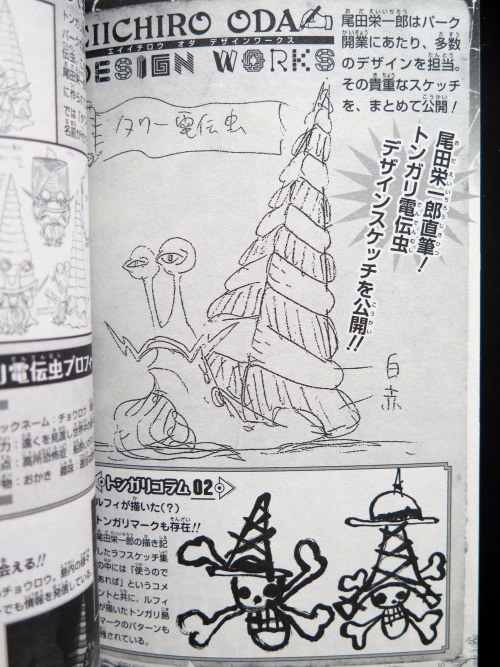 EIICHIRO ODA
エイイチロウ オダ デザインワークス
DESIGN WORKS
尾田栄一郎はパーク
開業にあたり、多数
のデザインを担当。
その貴重なスケッチ
を、まとめて公開！
タワー電伝虫
尾田栄一郎直筆！
トンガリ電伝虫
デザインスケッチを公開!!
白
赤
トンガリコラム 02
ルフィが描いた(？)
トンガリマークも存在!!
尾田栄一郎の描き記
したラフスケッチ集
の中には「使うので
あれば」というコメ
ントと共に、ルフィ
が描いたトンガリ島
マークのパターンも
残されている。
電伝虫プロフィ
ックネーム：チョウロウ
遠くを見渡し
高所恐怖症
おかき
会える!!
チョウロウ。
でも情報を発信している